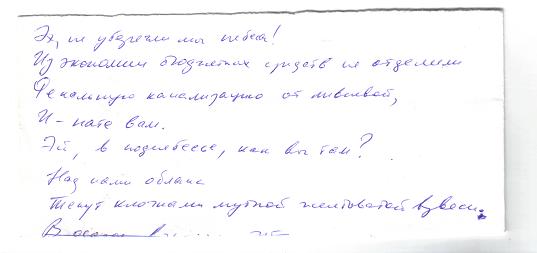 Эх, не уберегли мы небеса!
Из экономии бюджетных средств не отделили
Фекальную канализацию от ливневой,
И - нате вам.
Эй, в поднебесье, как вы там?
Над нами облака
Текут клочками мутной желтоватой взвеси.